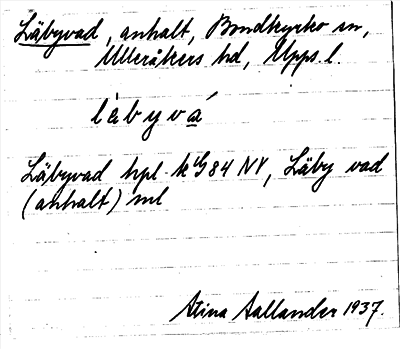 Läbyvad, anhalt, Bondkyrko sn,
Ulleråkers hd, Upps. l.
lä̀byvá
Läbyvad hpl. 84 NV, Läby vad
(anhalt) ml
Stina Aallander 1937.